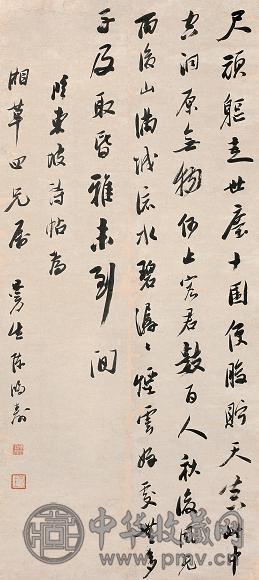 尺頑軀走世塵十圍便腹貯天真此中
空洞原無物何止容君數百人秋後風光
雨後山滿城流水碧潺潺煙雲好處無多
子及取昏雅未到間
臨東坡詩帖為
湘草四兄屬 曼生陳鴻壽
中华收藏网
www.pmv.cn